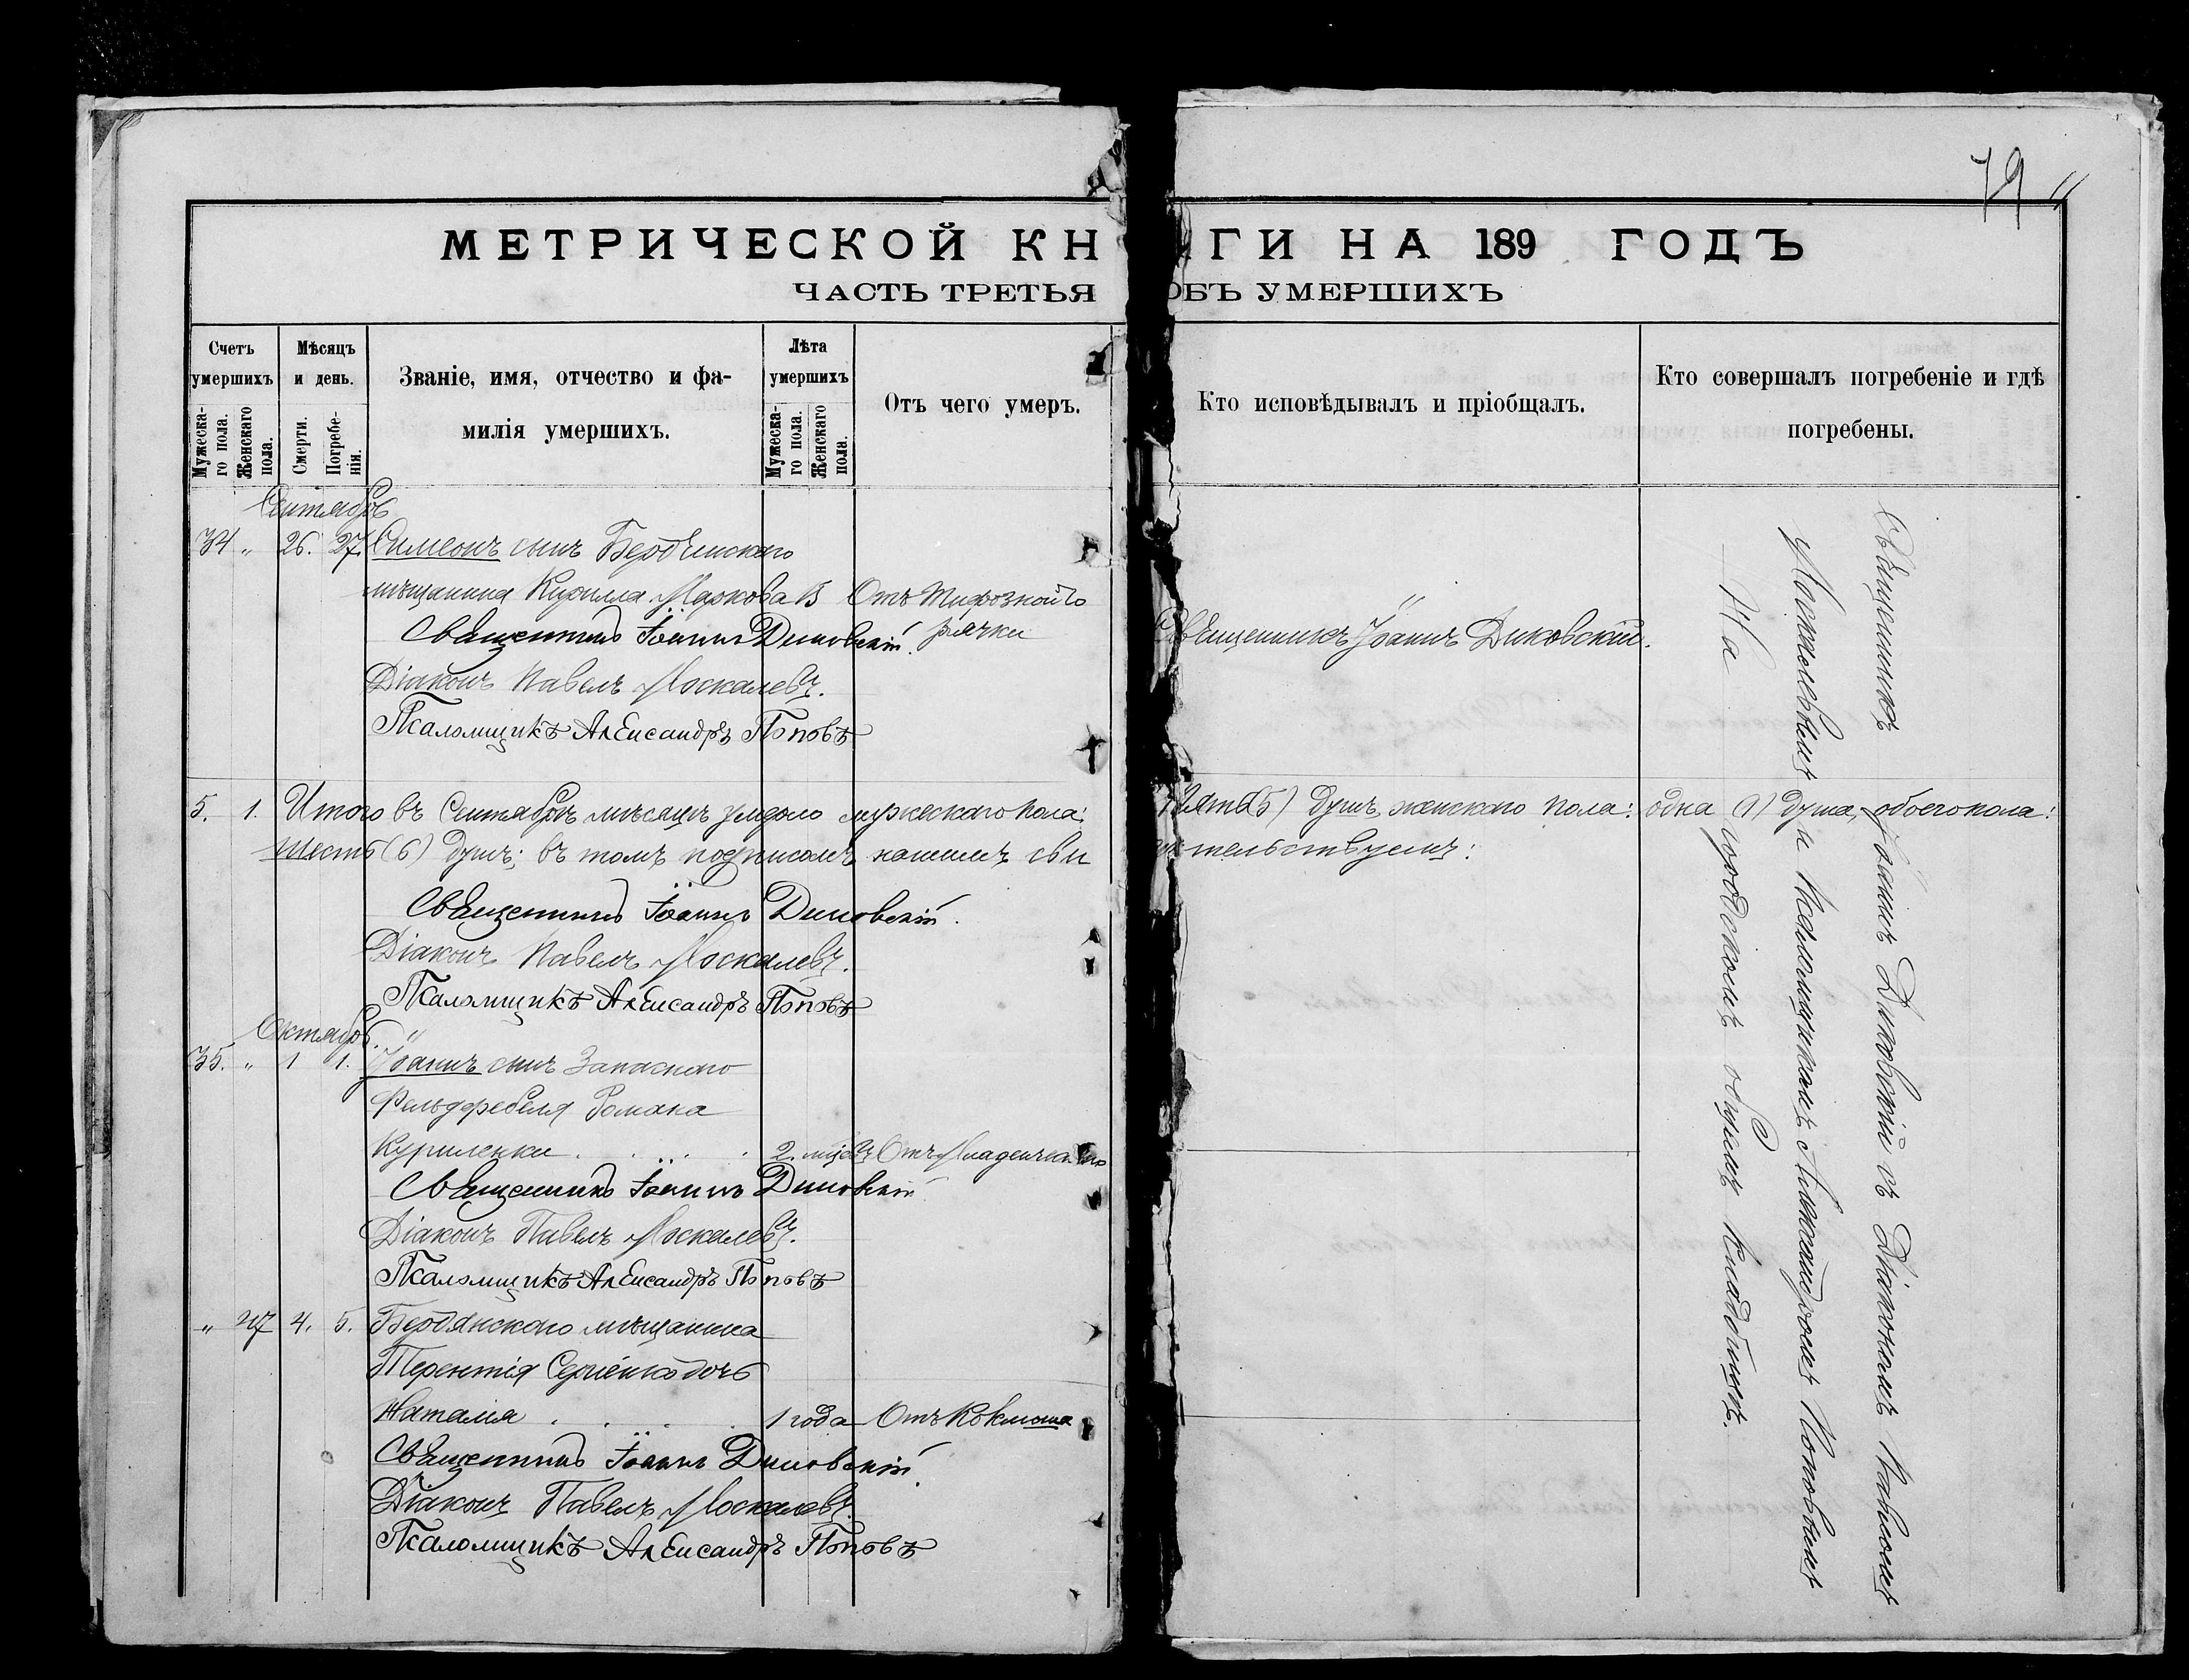 79
МЕТРИЧЕСКОЙ КНИГИ НА 189 ГОДЪ
ЧАСТЬ ТРЕТЬЯ ОБЪ УМЕРШИХЪ
Счетъ умершихъ
Мужеска-го пола.
Женскаго пола.
Мѣсяцъ и день.
Смерти.
Погребе-нія.
Званіе, имя, отчество и фа-
милія умершихъ.
Лѣта умершихъ
Мужеска-го пола.
Женскаго пола.
Отъ чего умеръ.
Кто исповѣдывалъ и пріобщалъ.
Кто совершалъ погребеніе и гдѣ
погребены.
Сентябрь
34 " 26. 27. Симеонъ сынъ Бердянскаго
мѣщанина Кирилла Маркова 13 Отъ Тифозной Го
рячки
Священникъ Іоаннъ Диковскій.
Діаконъ Павелъ Москалевъ.
Псаломщикъ Александръ Поповъ
Священникъ Іоаннъ Диковскій.
5. 1. Итого въ Сентябрѣ мѣсяцѣ умерло мужескаго пола: пять (5) душъ, женскаго пола: одна (1) душа, обоего пола:
шесть (6) душъ; въ томъ подписомъ нашимъ сви дѣтельствуемъ:
Священникъ Іоаннъ Диковскій.
Діаконъ Павелъ Москалевъ.
Псаломщикъ Александръ Поповъ
Октябрь.
35. " 1 1. Іоаннъ сынъ Запаснаго
Фельдфебеля Романа
Куриленки . . . . . 2. мѣсяц. Отъ Младенческаго
Священникъ Іоаннъ Диковскій
Діаконъ Павелъ Москалевъ.
Псаломщикъ Александръ Поповъ
" 27 4. 5. Бердянскаго мѣщанина
Терентія Сергіенко дочь
Наталія . . . . . 1 года Отъ Коклюша
Священникъ Іоаннъ Диковскій.
Діаконъ Павелъ Москалевъ.
Псаломщикъ Александръ Поповъ
Священникъ Іоаннъ Диковскій съ Діакономъ Павломъ
Москалевымъ и Псаломщикомъ Александромъ Поповымъ
На городскомъ общемъ кладбищѣ.